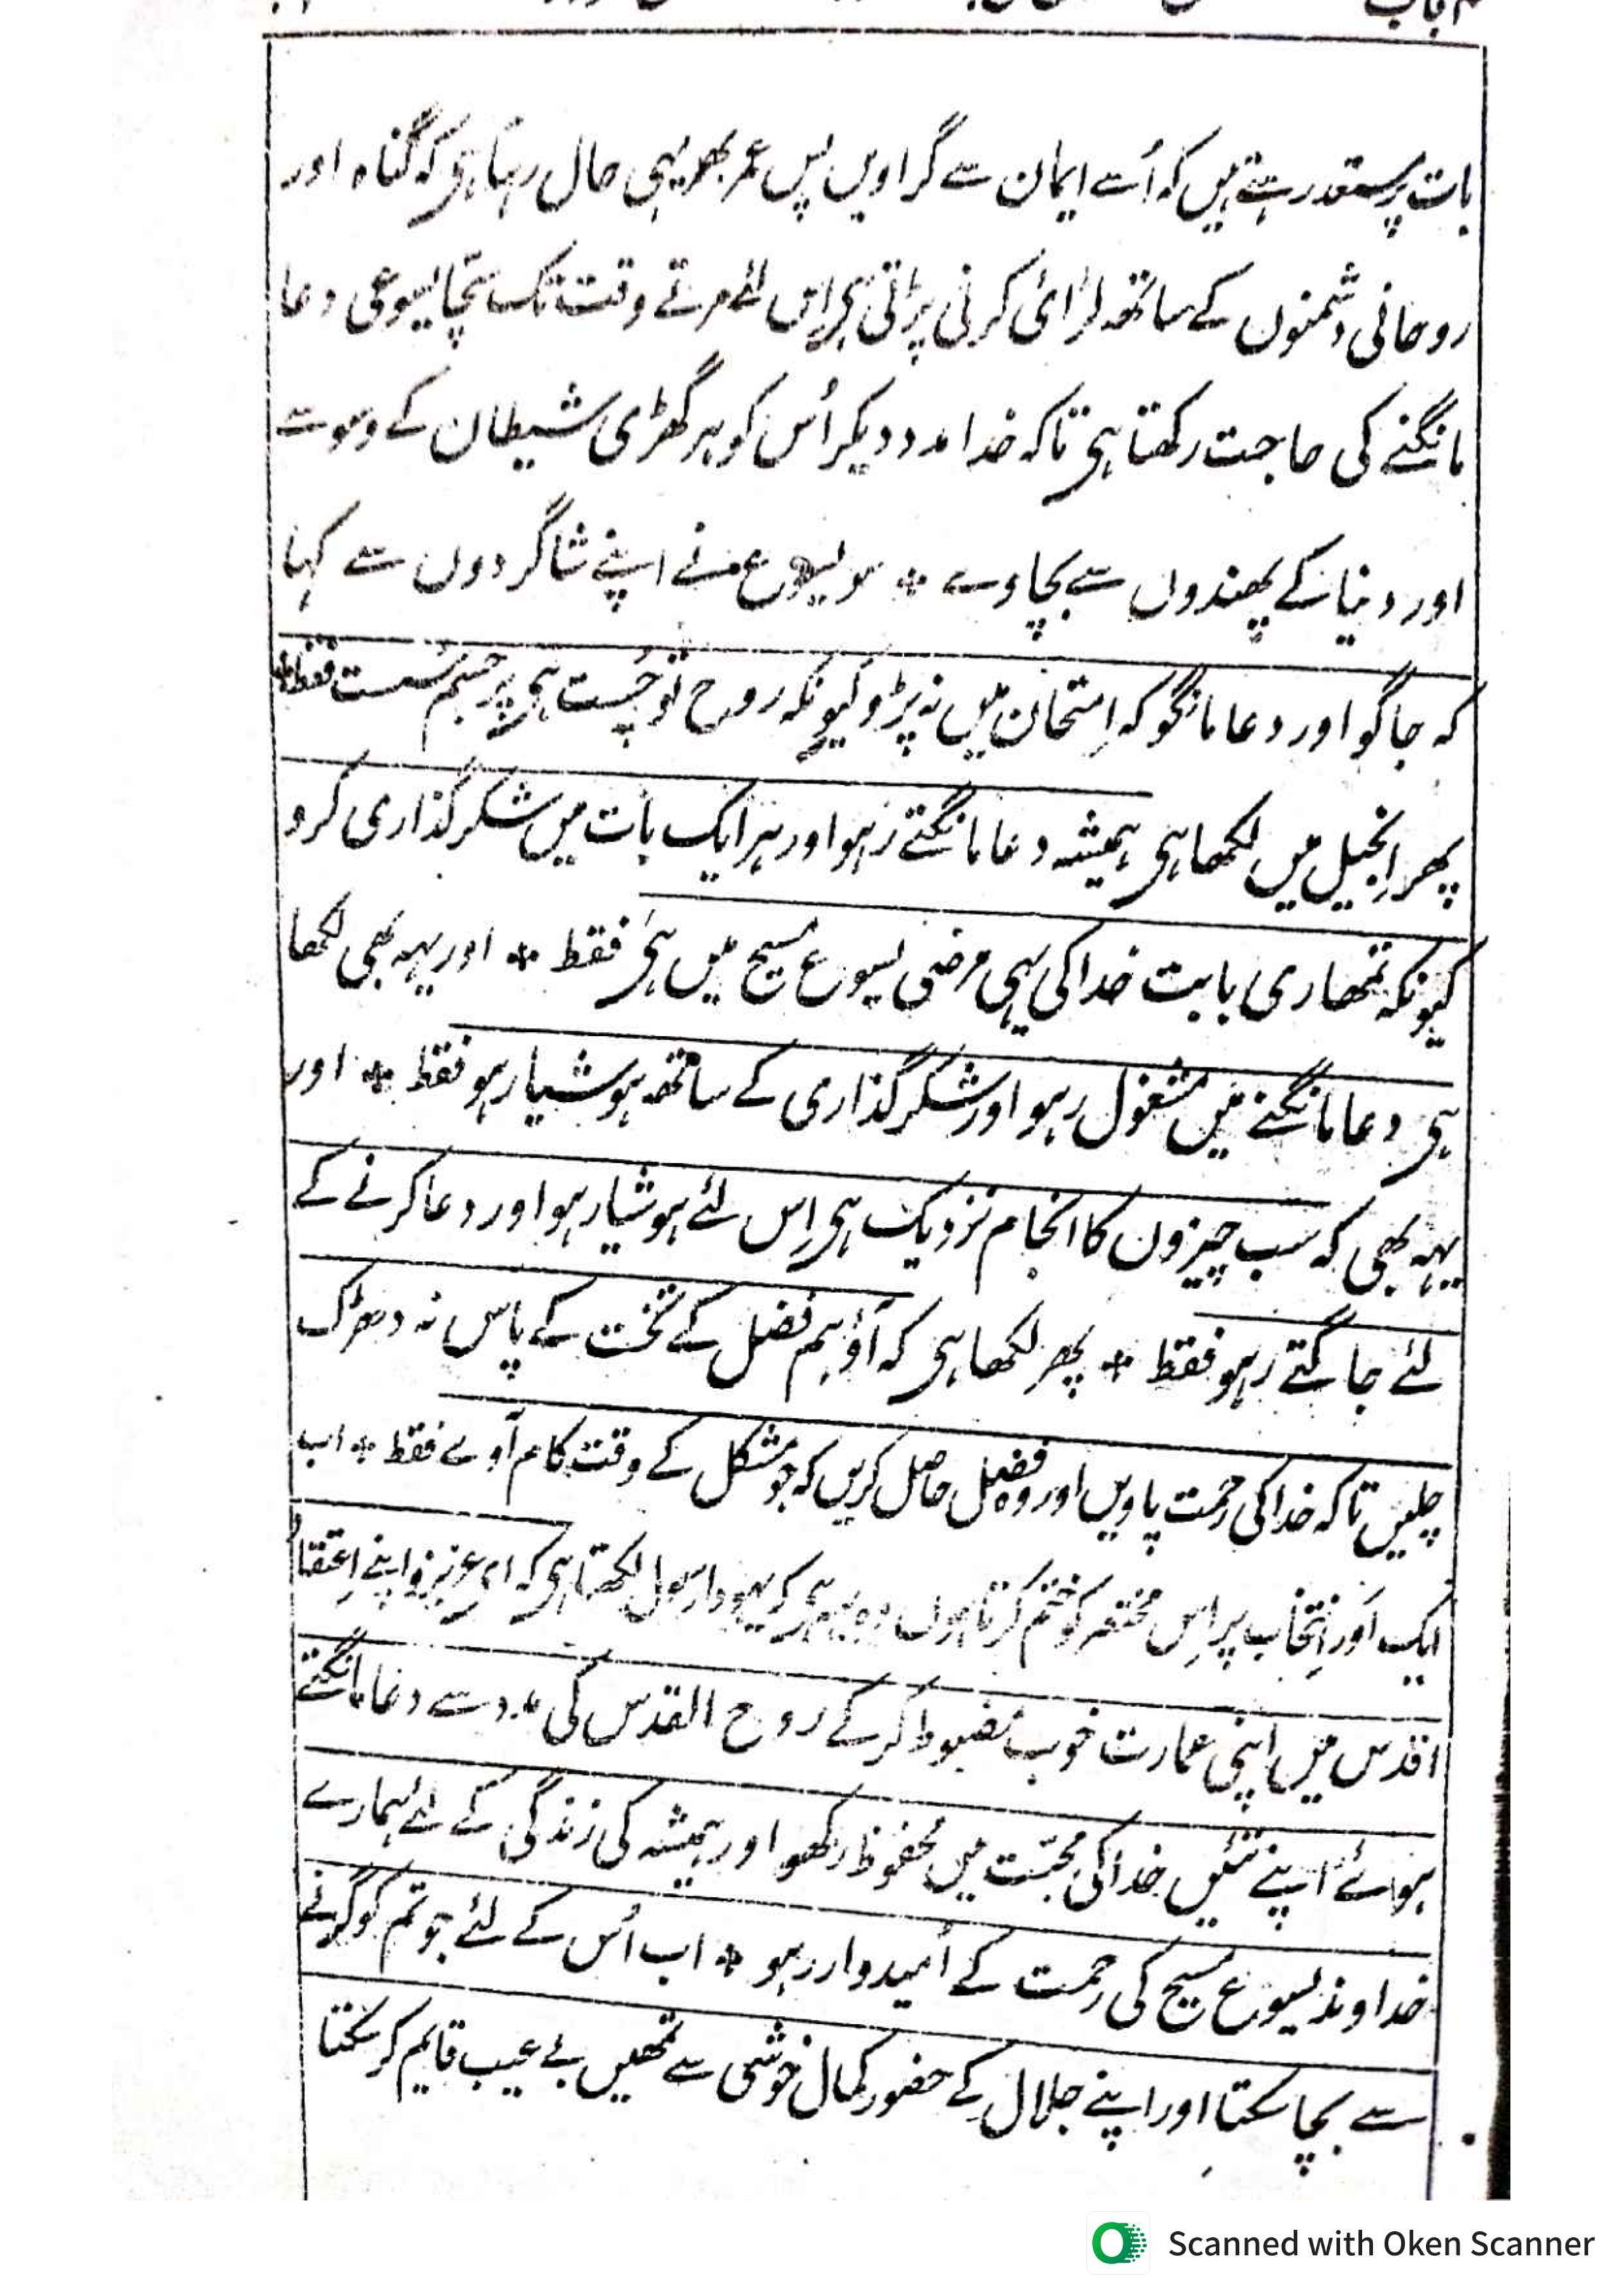 بات پر مستعد رہتے ہیں کہ اُسے ایمان سے گراویں پس عمر بھر یہی حال رہتا ہی کہ گناہ اور
روحانی دشمنوں کے ساتھہ لڑائی کرنی پڑتی ہی اِس لئے مرتے وقت تک سچّا یسوعی دعا
مانگنے کی حاجت رکھتا ہی تاکہ خدا مدد دیکر اُس کو ہر گھڑی شیطان کے وسوسے
اور دنیا کے پھندوں سے بچاوے * سو یسوع نے اپنے شاگردوں سے کہا
کہ جاگو اور دعا مانگو کہ اِمتحان میں نہ پڑو کیونکہ روح تو چُست ہی پر جسم سُست فقط *
پھر اِنجیل میں لکھا ہی ہمیشہ دعا مانگتے رہو اور ہر ایک بات میں شکرگذاری کرو
کیونکہ تمھاری بابت خدا کی یہی مرضی یسوع مسیح میں ہی فقط * اور یہہ بھی لکھا
ہی دعا مانگنے میں مشغول رہو اور شکرگذاری کے ساتھہ ہوشیار ہو فقط * اور
یہہ بھی کہ سب چیزوں کا انجام نزدیک ہی اِس لئے ہوشیار ہو اور دعا کرنے کے
لئے جاگتے رہو فقط * پھر لکھا ہی کہ آؤ ہم فضل کے تخت کے پاس نہ دھڑک
چلیں تاکہ خدا کی رحمت پاویں اور وہ فضل حاصل کریں کہ جو مشکل کے وقت کام آوے فقط * اب
ایک اَور اِنتخاب پر اِس مختصر کو ختم کرتا ہوں وہ یہہ ہی کہ یہودا رسول لکھتا ہی کہ ای عزیزو اپنے اِعتقاد
اقدس میں اپنی عمارت خوب مضبوط کر کے روح القدس کی مدد سے دعا مانگتے
ہوئے اپنے تئیں خدا کی محبّت میں محفوظ رکھو اور ہمیشہ کی زندگی کے لئے ہمارے
خداوند یسوع مسیح کی رحمت کے اُمیدوار رہو * اب اُس کے لئے جو تم کو گرنے
سے بچا سکتا اور اپنے جلال کے حضور کمال خوشی سے تمھیں بے عیب قایم کر سکتا
Scanned with Oken Scanner